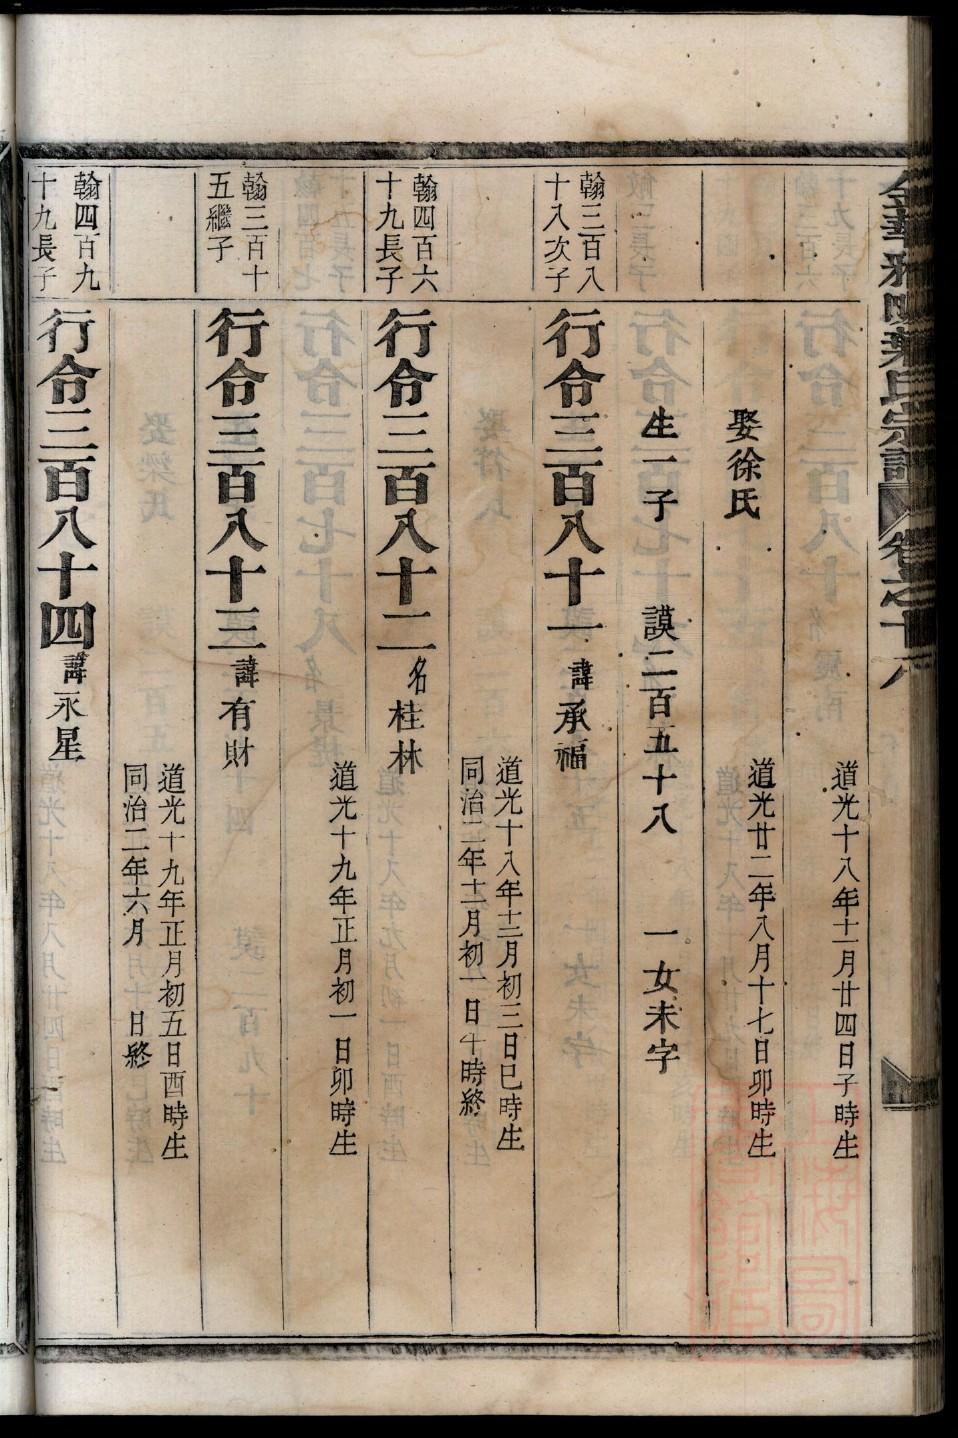 道光十八年十一月廿四日子時生
娶徐氏
道光廿二年八月十七日卯時生
生一子 謨二百五十八 一女未字
翰三百八
十八次子
行令三百八十一諱承福
道光十八年十二月初三日巳時生
同治二年十一月初一日午時終
翰四百六
十九長子
行令三百八十二名桂林
道光十九年正月初一日卯時生
翰三百十
五繼子
行令三百八十三諱有財
道光十九年正月初五日酉時生
同治二年六月 日終
翰四百九
十九長子
行令三百八十四諱永星